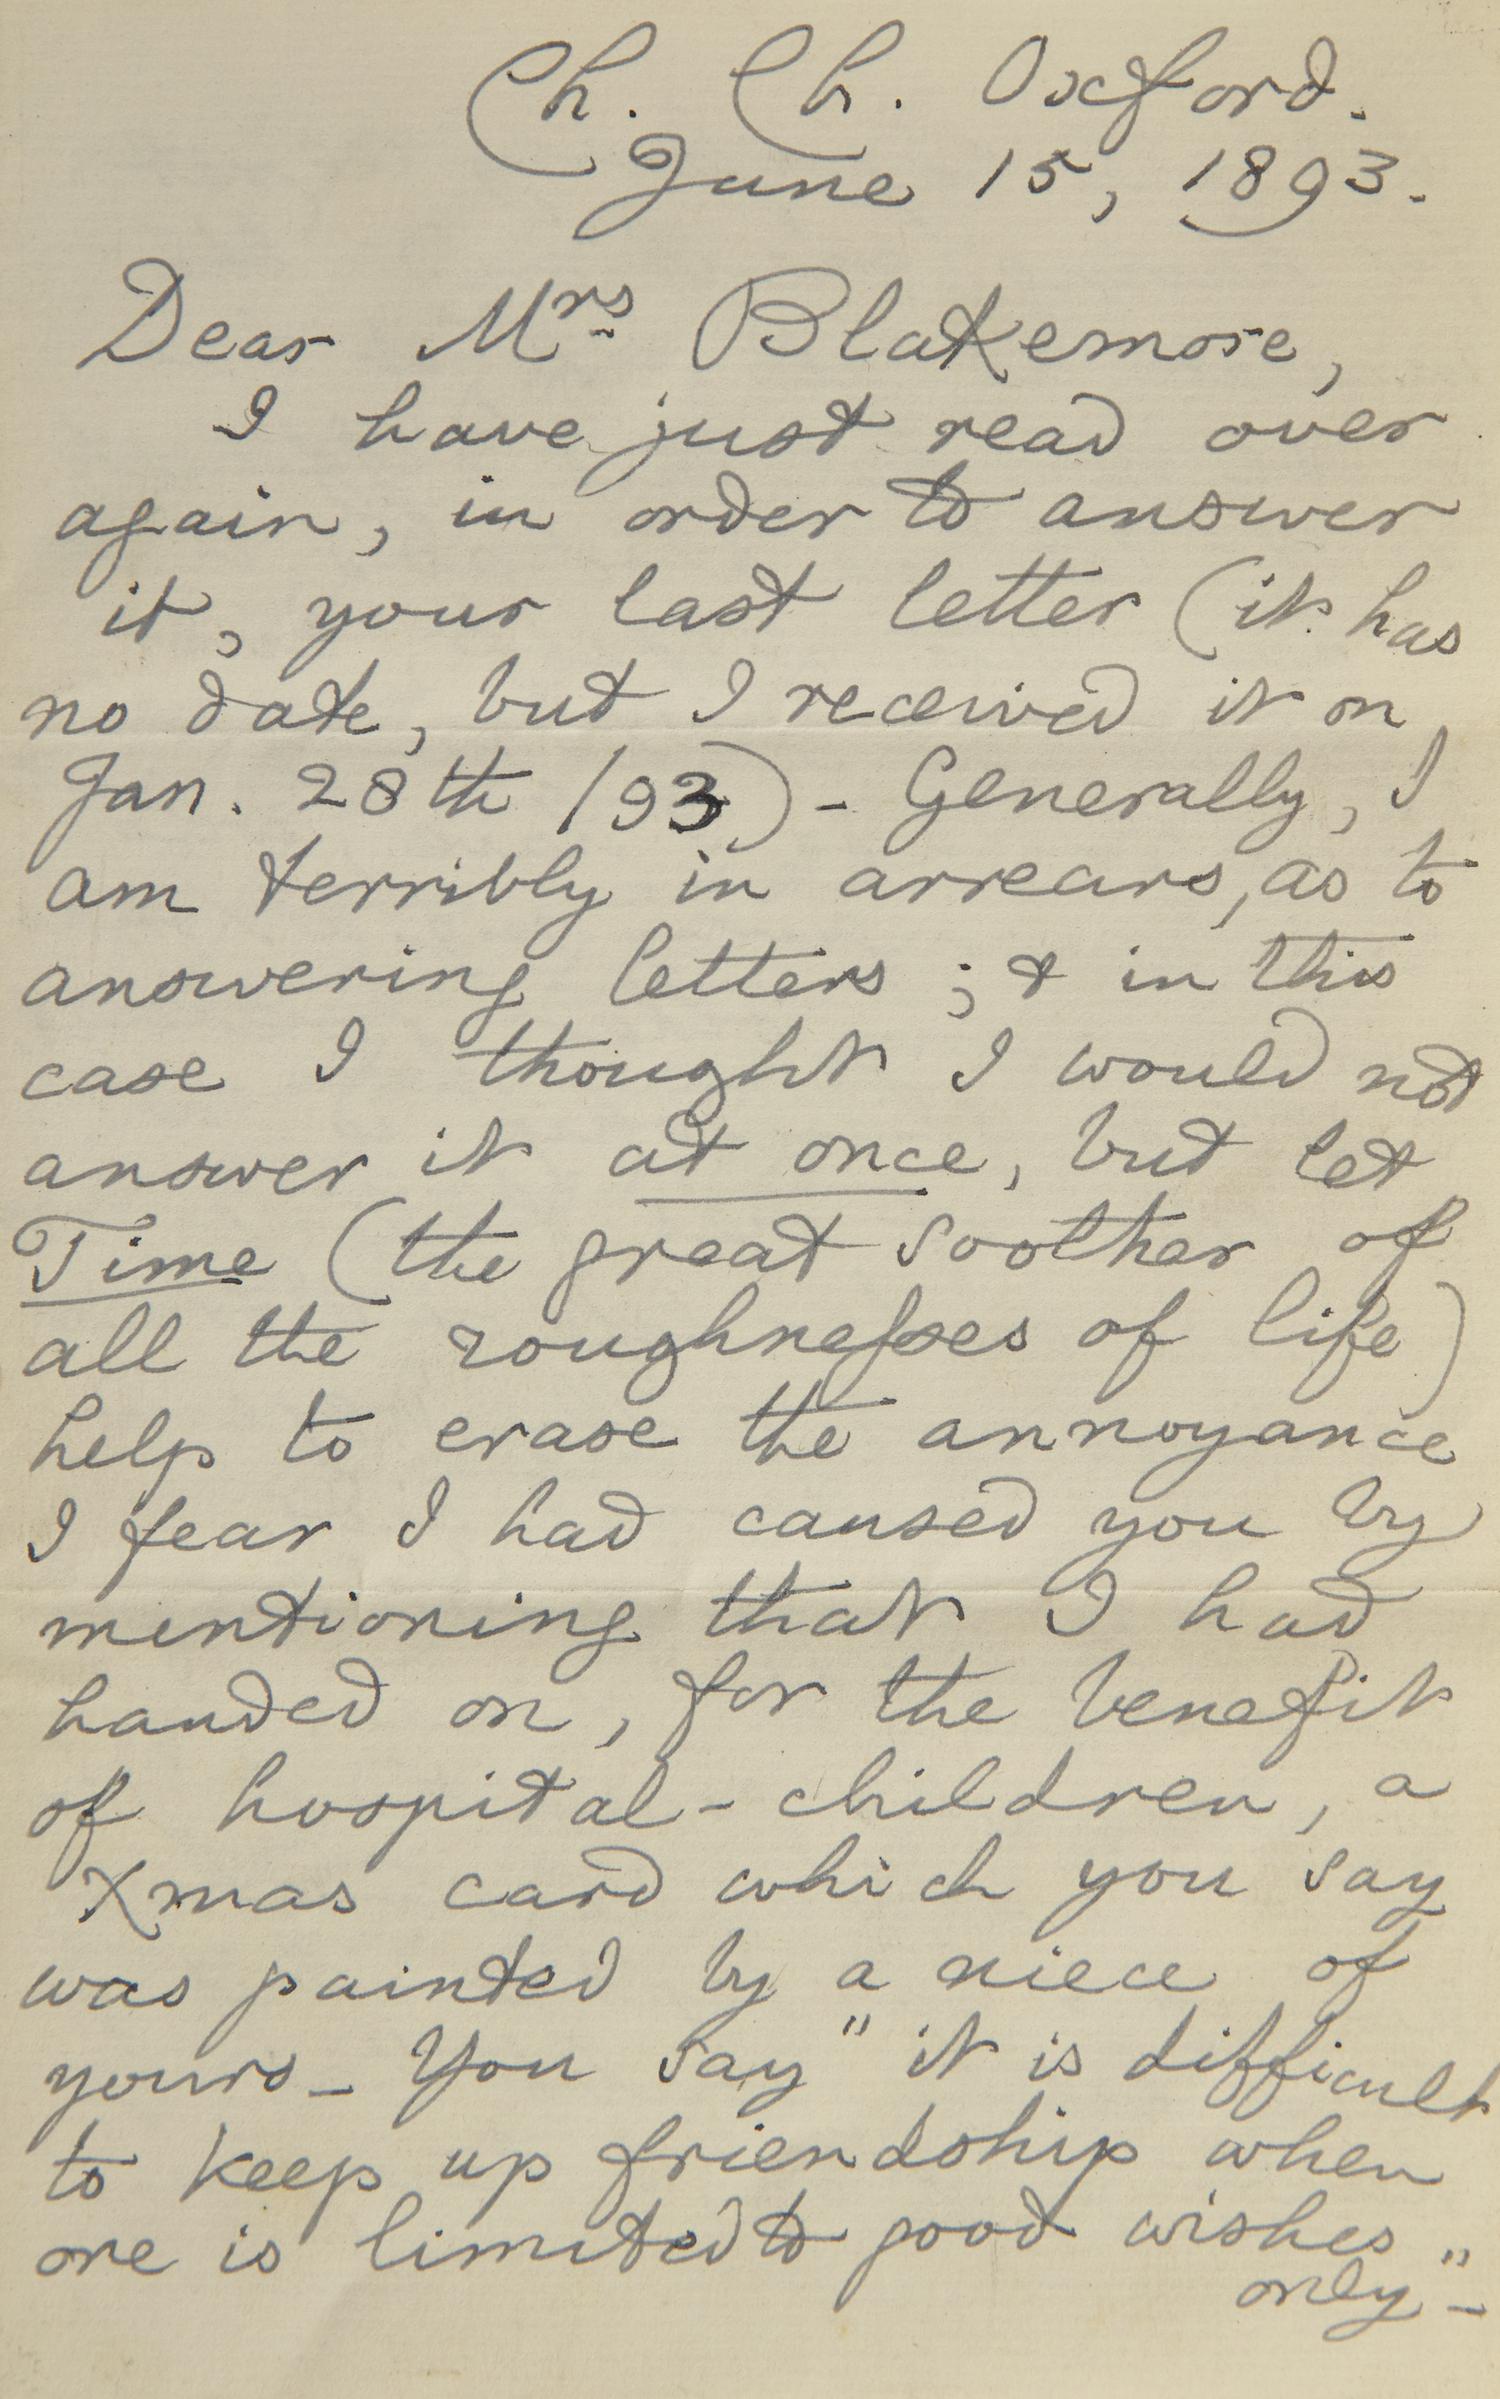 Ch. Ch. Oxford.
June 15, 1893.
Dear Mrs. Blakemore,
I have just read over
again, in order to answer
it, your last letter (it has
no date, but I received it on
Jan. 28th /93) - Generally, I
am terribly in arrears, as to
answering letters ; & in this
case I thought I would not
answer it at once, but let
Time (the great soother of
all the roughnesses of life)
help to erase the annoyance
I fear I had caused you by
mentioning that I had
handed on, for the benefit
of hospital-children, a
Xmas card which you say
was painted by a niece of
yours - You say "it is difficult
to keep up friendship when
one is limited to good wishes
only" -